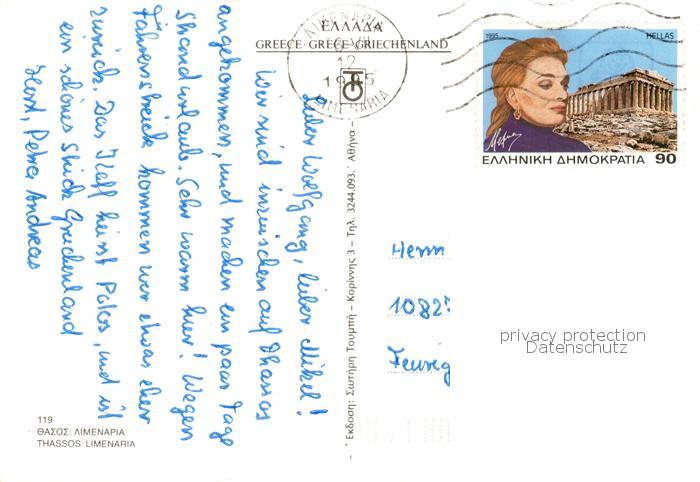 ΕΛΛΑΔΑ
GREECE · GRECE · GRIECHENLAND
LIMENARIA
12
1995
ΛΙΜΕΝΑRIA
1995
HELLAS
ΕΛΛΗΝΙΚΗ ΔΗΜΟΚΡΑΤΙΑ 90
Lieber Wolfgang, lieber Mikel!
Wir sind inzwischen auf Thassos
angekommen, und machen ein paar Tage
Strandurlaub. Sehr warm hier! Wegen
Fährenstreik kommen wir etwas eher
zurück. Das Treff heisst Potos, und ist
ein schönes Stück Griechenland
Herzl, Petra, Andreas
Herrn
1082
privacy protection
Datenschutz
119
ΘΑΣΟΣ: ΛΙΜΕΝΑΡΙΑ
THASSOS: LIMENARIA
Έκδοση: Σωτήρη Τουμπή – Κορίννης 3 – Τηλ. 3244.093. Αθήνα –